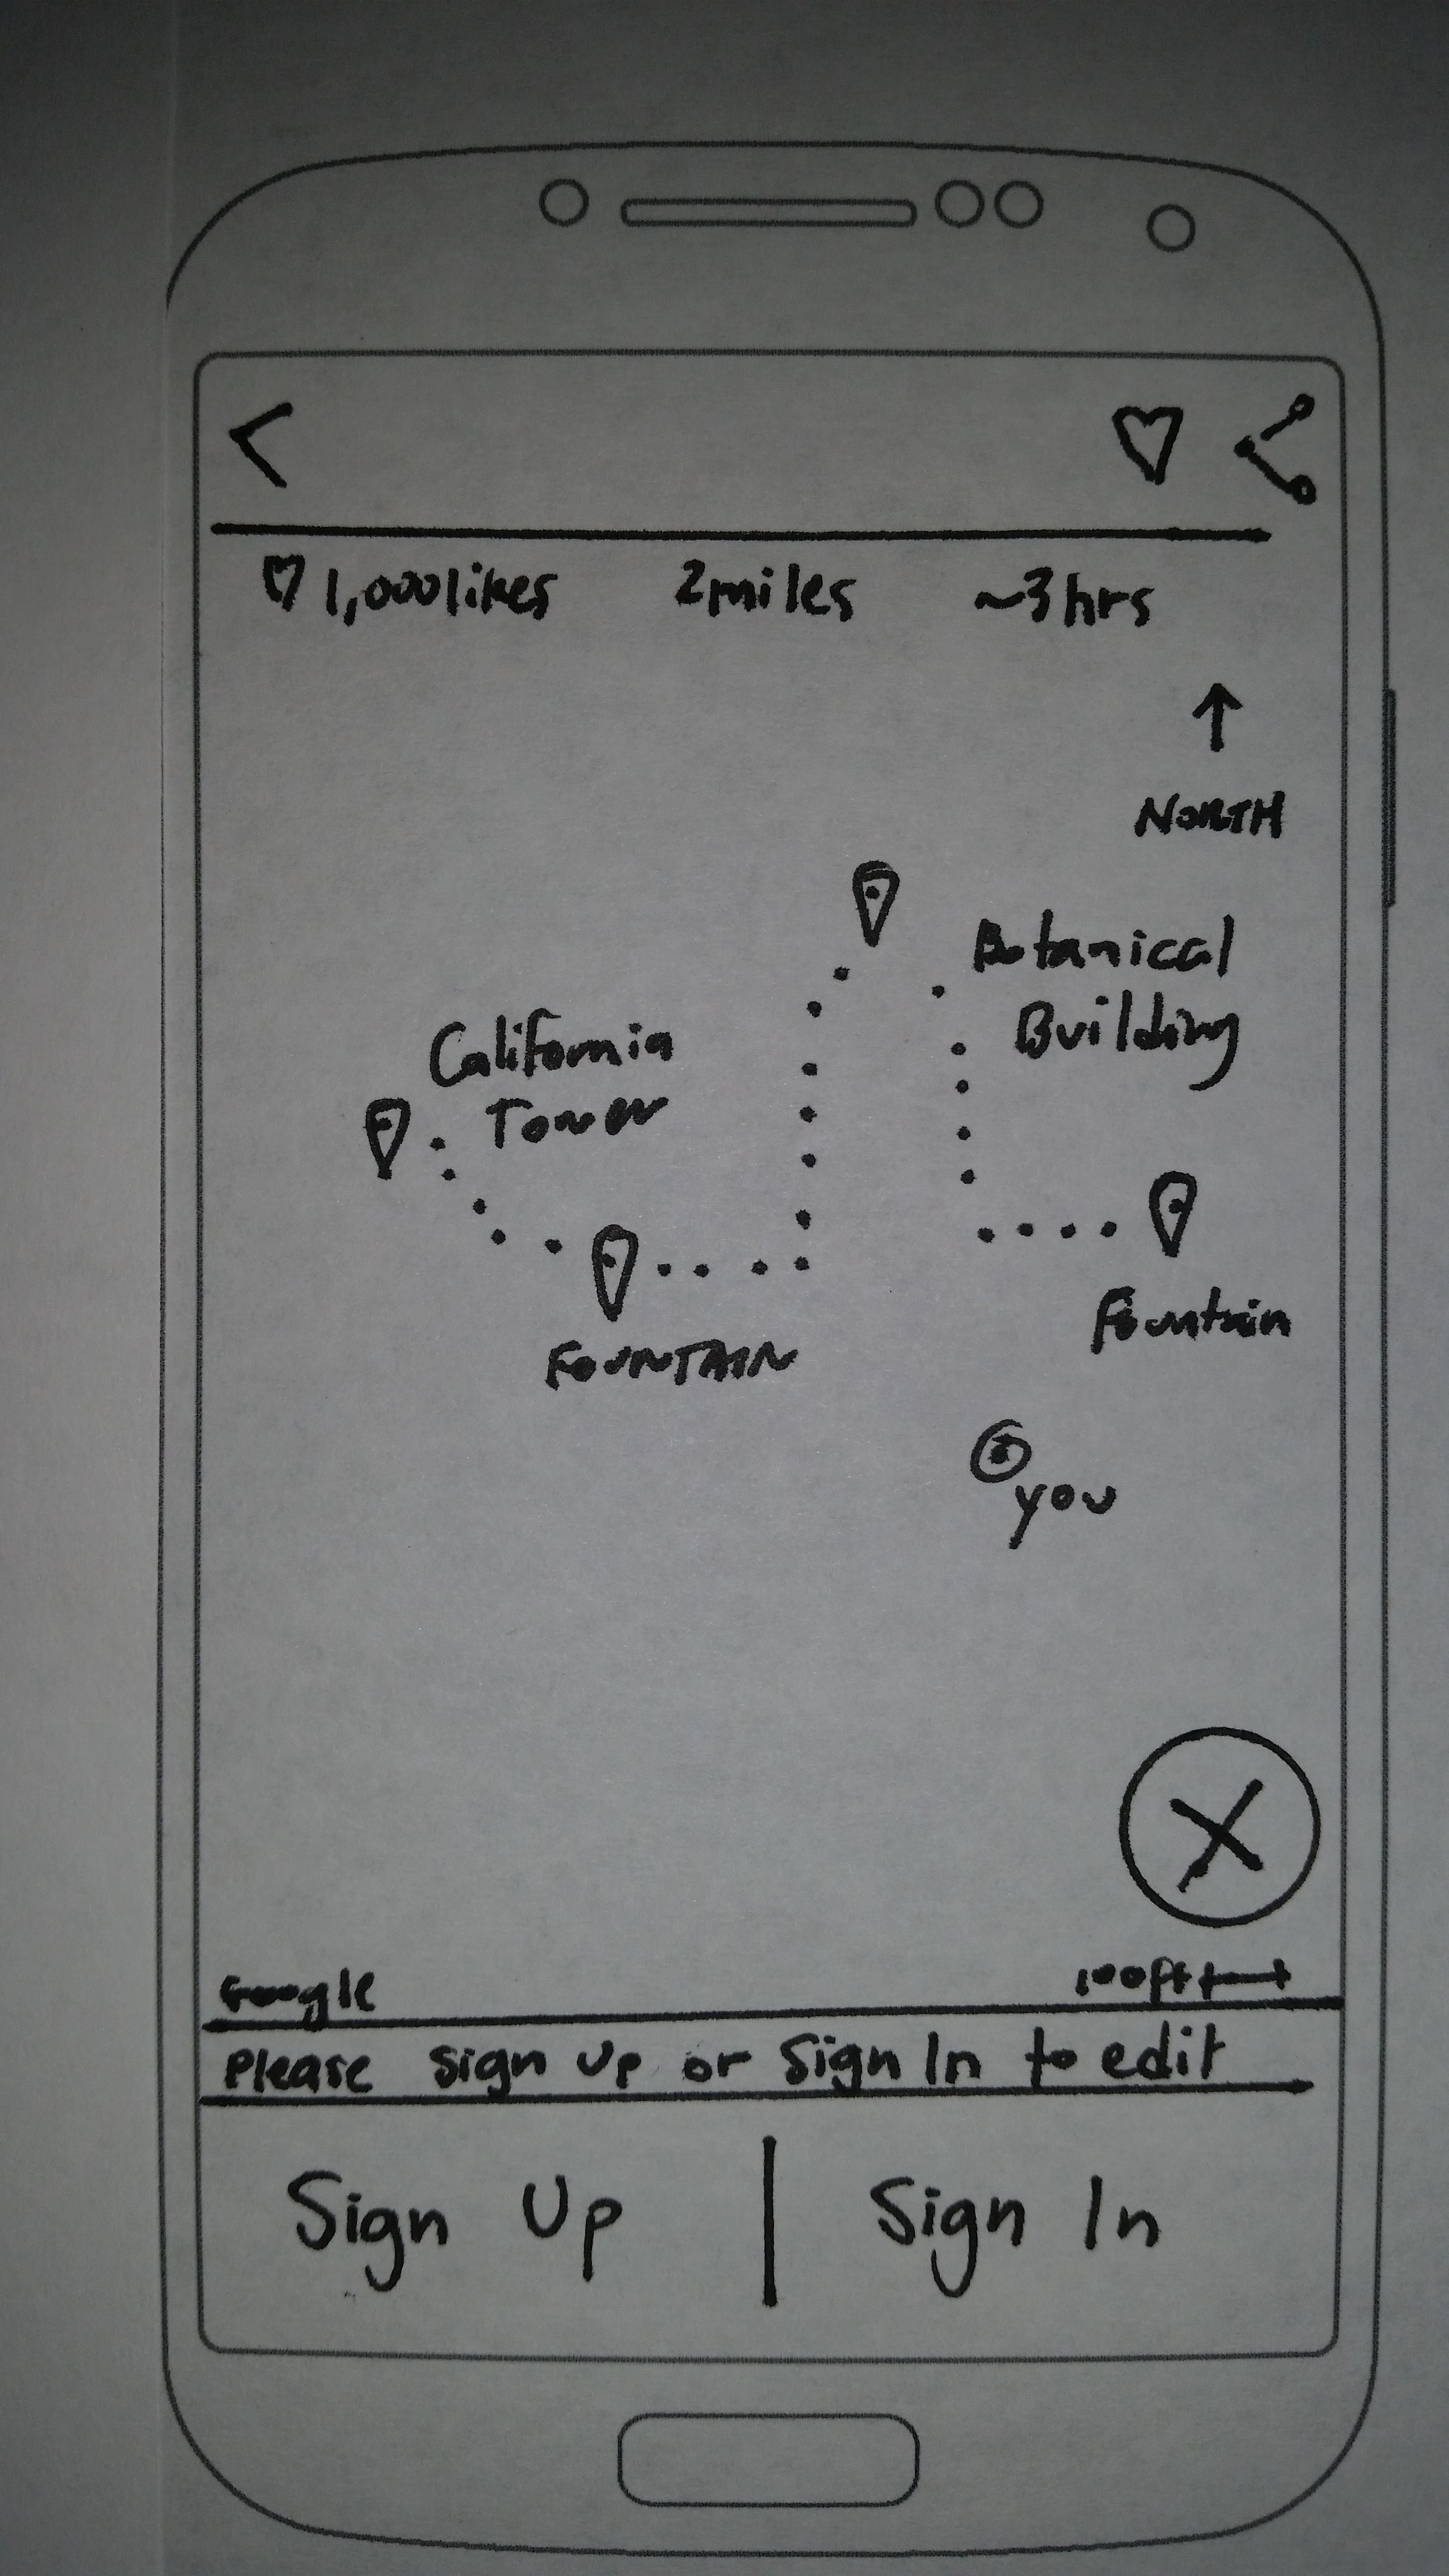 1,000 likes 2 miles ~3 hrs
NORTH
Botanical
Building
California
Tower
Fountain
FOUNTAIN
you
Google 100ft
Please sign up or Sign In to edit
Sign Up | Sign In